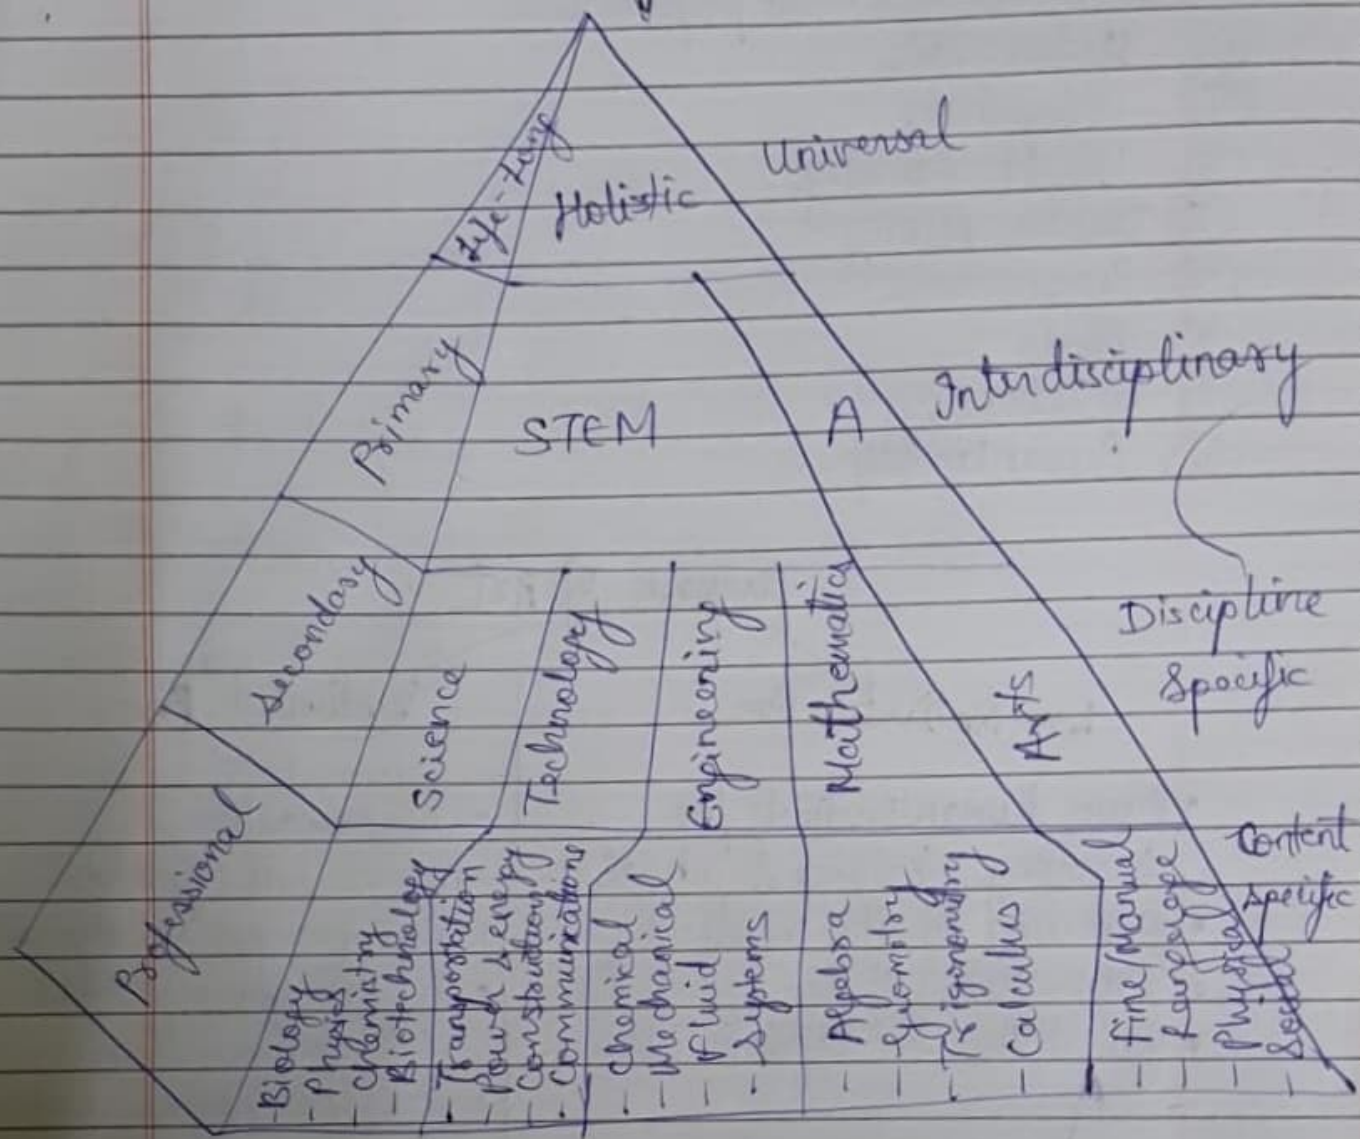 Life-Long
Holistic
Universal
Primary
STEM
A
Interdisciplinary
Secondary
Science
Technology
Engineering
Mathematics
Arts
Discipline
Specific
Professional
- Biology
- Physics
- Chemistry
- Biotechnology
- Transportation
- Power & energy
- Construction
- Communications
- Chemical
- Mechanical
- Fluid
- Systems
- Algebra
- Geometry
- Trigonometry
- Calculus
- Fine/Manual
- Language
- Physical
- Social
Content
Specific